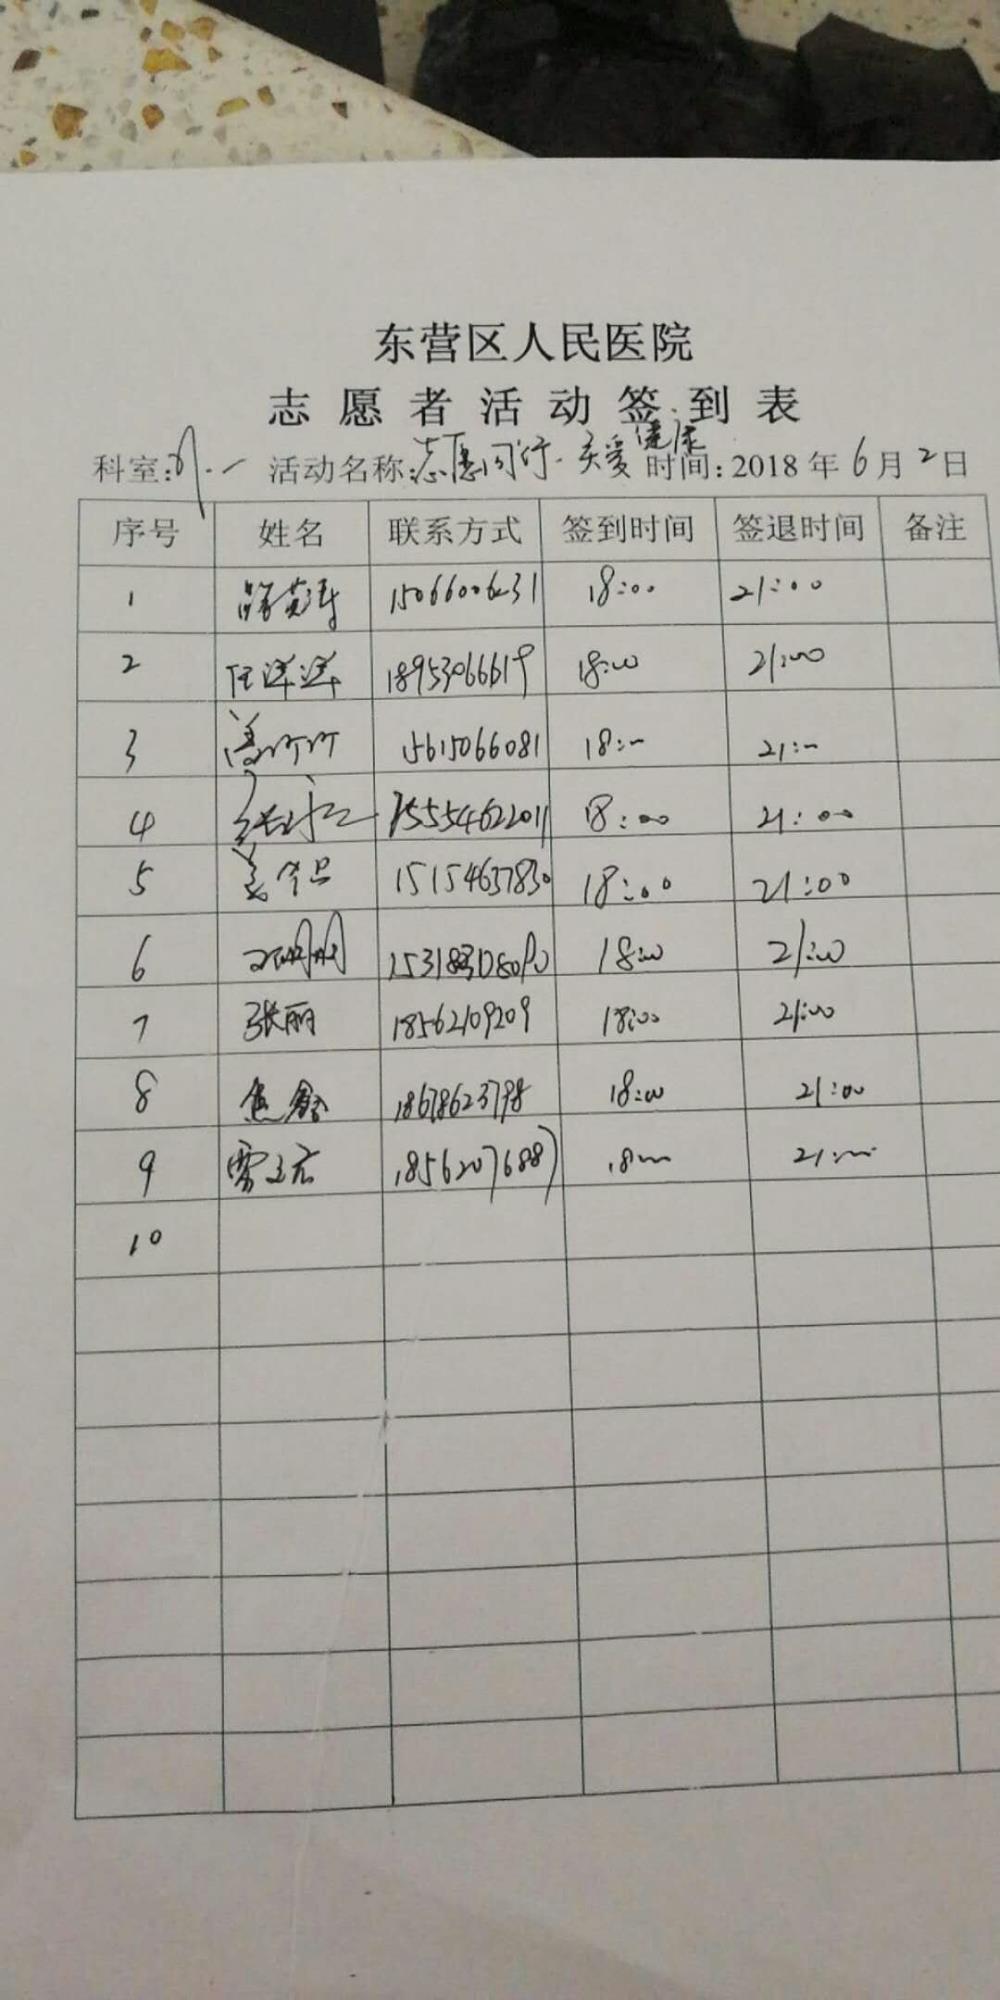 东营区人民医院
志愿者活动签到表
科室: 活动名称:志愿同行·关爱健康 时间:2018年6月2日
序号 姓名 联系方式 签到时间 签退时间 备注
1 15066006231 18:00 21:00
2 任洋洋 18953066619 18:00 21:00
3 15615066081 18:00 21:00
4 15554622011 18:00 21:00
5 15154637830 18:00 21:00
6 18:00 21:00
7 张丽 18562109209 18:00 21:00
8 焦鑫 18678623798 18:00 21:00
9 18562076887 18:00 21:00
10